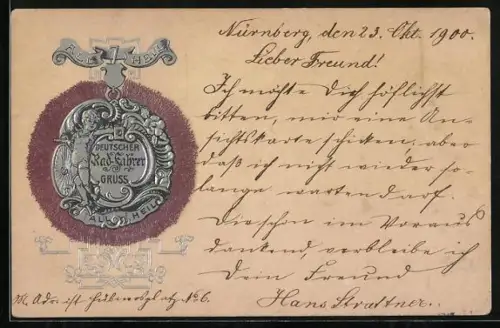 Nürnberg, den 23. Okt. 1900.
Lieber Freund!
Ich möchte Dich höflichst
bitten, mir eine An-
sichtskarte schicken, aber
daß ich nicht wieder so-
lange warten darf.
Dir schon im Voraus
dankend, verbleibe ich
Dein Freund
Hans Strattner.
DEUTSCHER
Rad-Fahrer
GRUSS
ALL HEIL
M. Adr. ist No 6.